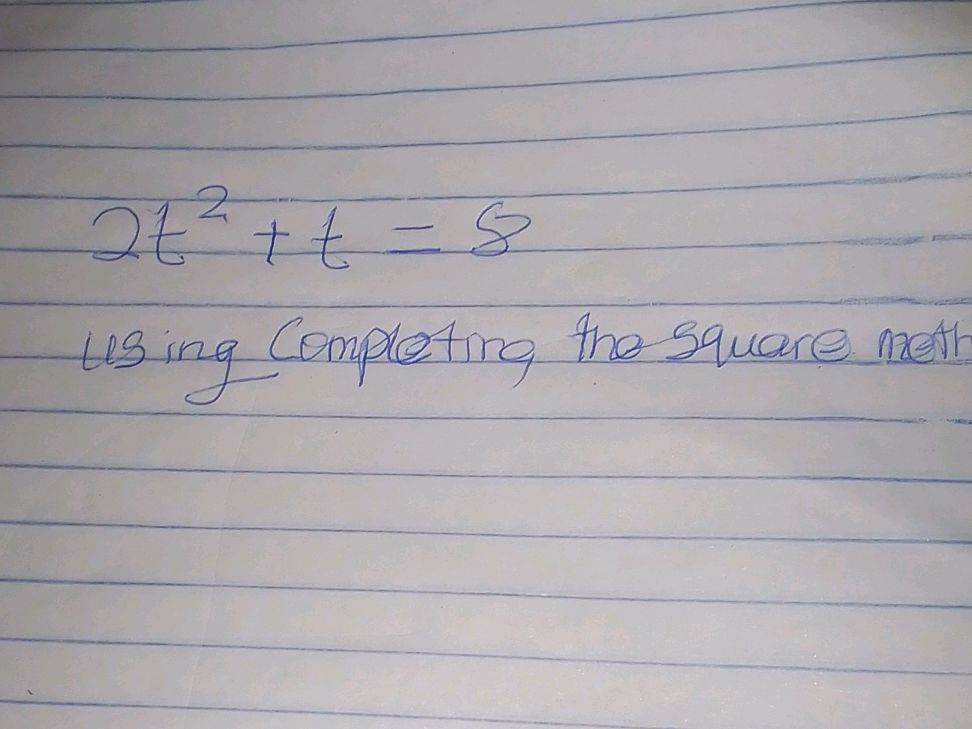 2t² + t = 8
Using Completing the square meth